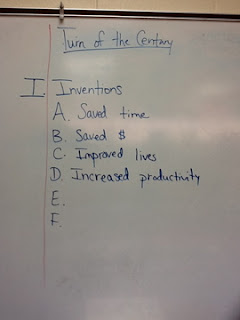 Turn of the Century
I. Inventions
A. Saved time
B. Saved $
C. Improved lives
D. Increased productivity
E.
F.